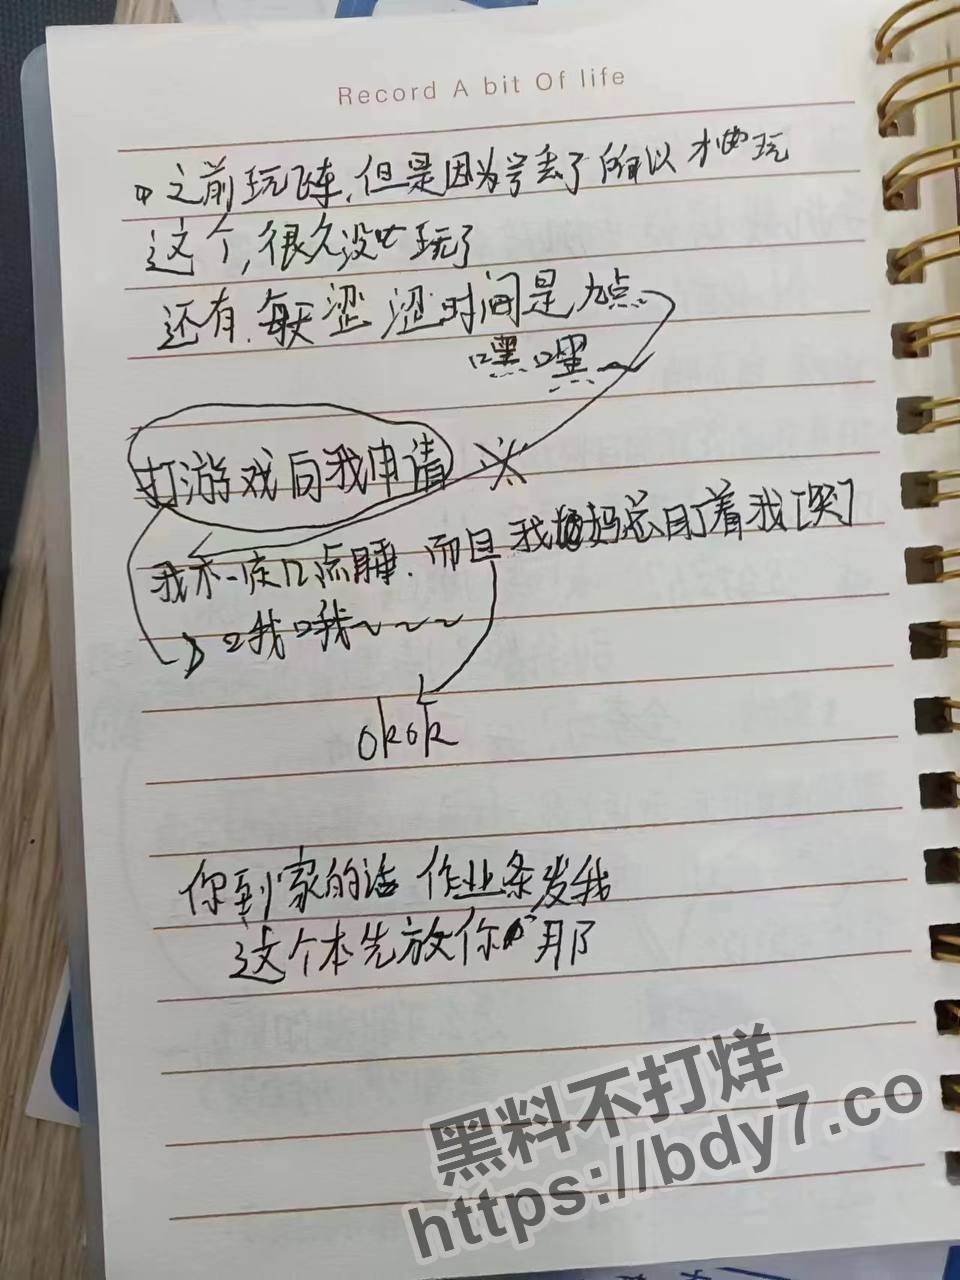 Record A bit Of life
之前玩飞车,但是因为号丢了所以才玩
这个,很久没玩了
还有.每天涩涩时间是九点
嘿嘿~
打游戏向我申请
我不一定几点睡.而且我妈妈总盯着我[哭]
哦哦~~~
okok
你到家的话 作业条发我
这个本先放你那
黑料不打烊
https://bdy7.co